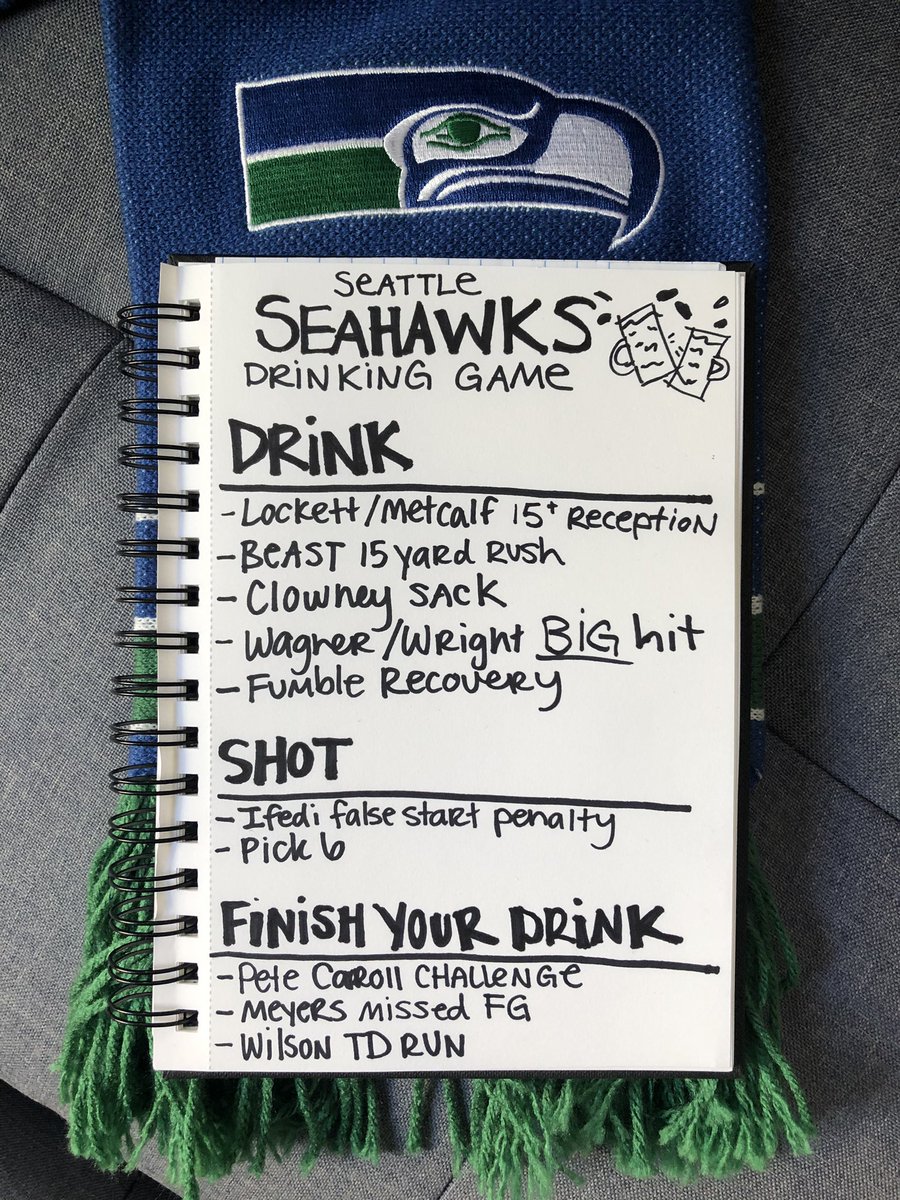 SEATTLE
SEAHAWKS
DRINKING GAME
DRINK
- Lockett/Metcalf 15+ Reception
- BEAST 15 yard Rush
- Clowney SACK
- Wagner/Wright BIG hit
- Fumble Recovery
SHOT
- Ifedi false start penalty
- Pick 6
FINISH YOUR DRINK
- Pete Carroll CHALLENGE
- Meyers missed FG
- Wilson TD RUN